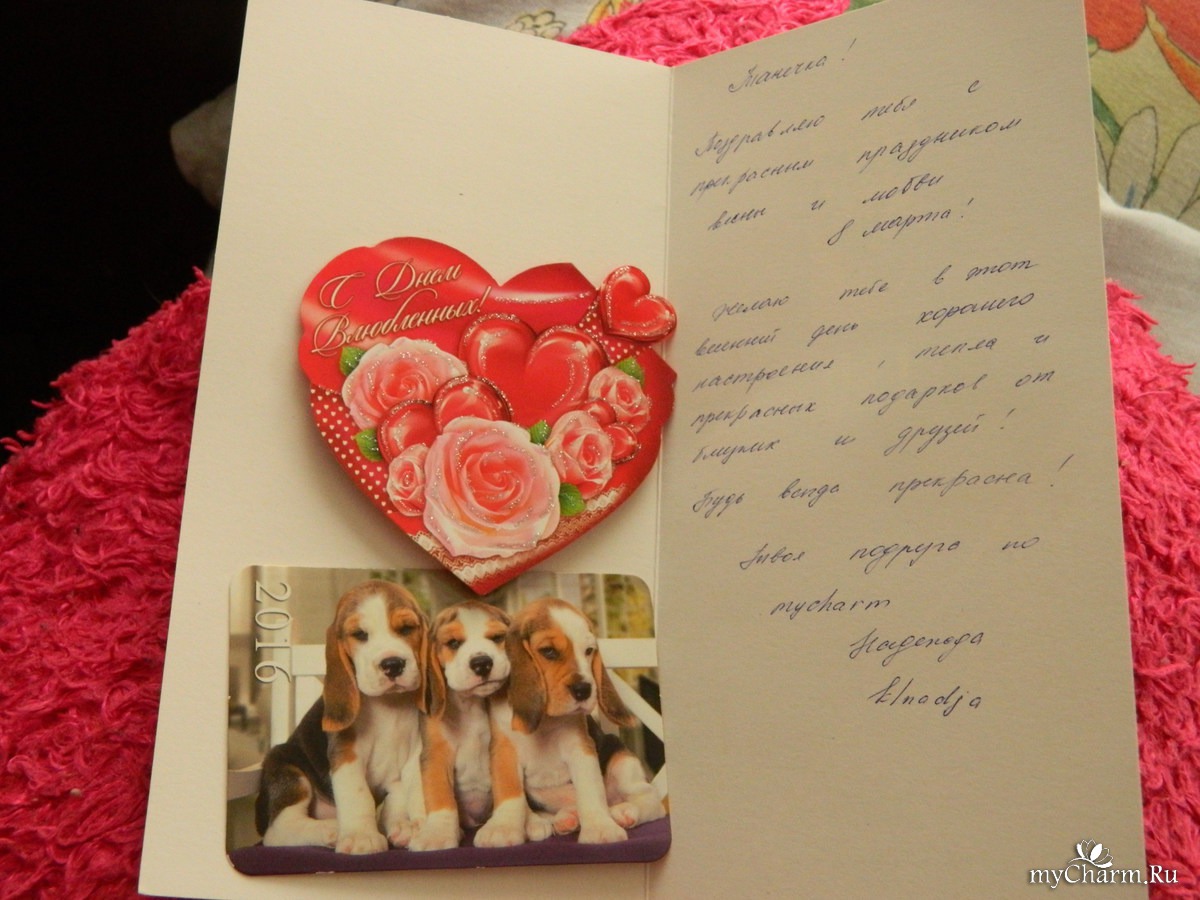 С Днем
Влюбленных!
2016
Танечка!
Поздравляю тебя с
прекрасным праздником
весны и любви
8 марта!
Желаю тебе в этот
весенний день хорошего
настроения, тепла и
прекрасных подарков от
близких и друзей!
Будь всегда прекрасна!
Твоя подруга по
mycharm
Надежда
klnadja
myCharm.Ru